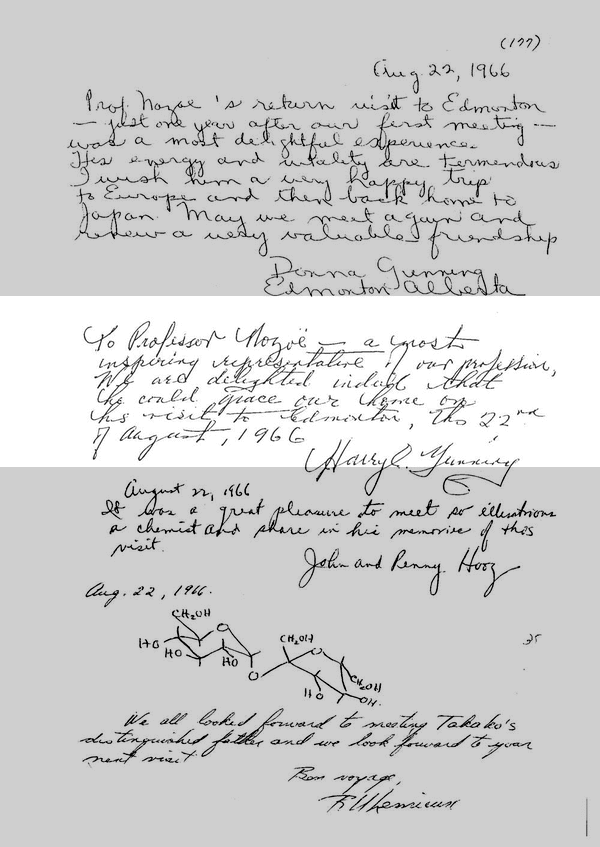 (177)
Aug. 22, 1966
Prof. Nozoe's return visit to Edmonton
— just one year after our first meeting —
was a most delightful experience.
His energy and vitality are termendous
I wish him a very happy trip
to Europe and then back home to
Japan. May we meet again and
renew a very valuable friendship
Donna Gunning
Edmonton Alberta
To Professor Nozoë — a most
inspiring representative of our profession,
We are delighted indeed that
he could grace our home on
his visit to Edmonton, this 22nd
of August, 1966
Harry E. Gunning
August 22, 1966
It was a great pleasure to meet so illustrious
a chemist and share in his memories of this
visit.
John and Penny Hooz
Aug. 22, 1966.
CH2OH
O
HO
HO
HO
O
CH2OH
O
HO
CH2OH
OH
35
We all looked forward to meeting Takako's
distinguished father and we look forward to your
next visit.
Bon voyage,
R U Lemieux